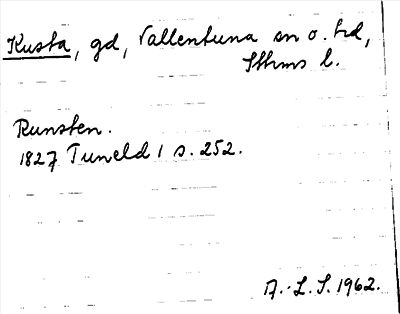 Kusta, gd, Vallentuna sn o. hd,
Sthms l.
Runsten.
1827 Tuneld 1 s. 252.
A.-L. S. 1962.